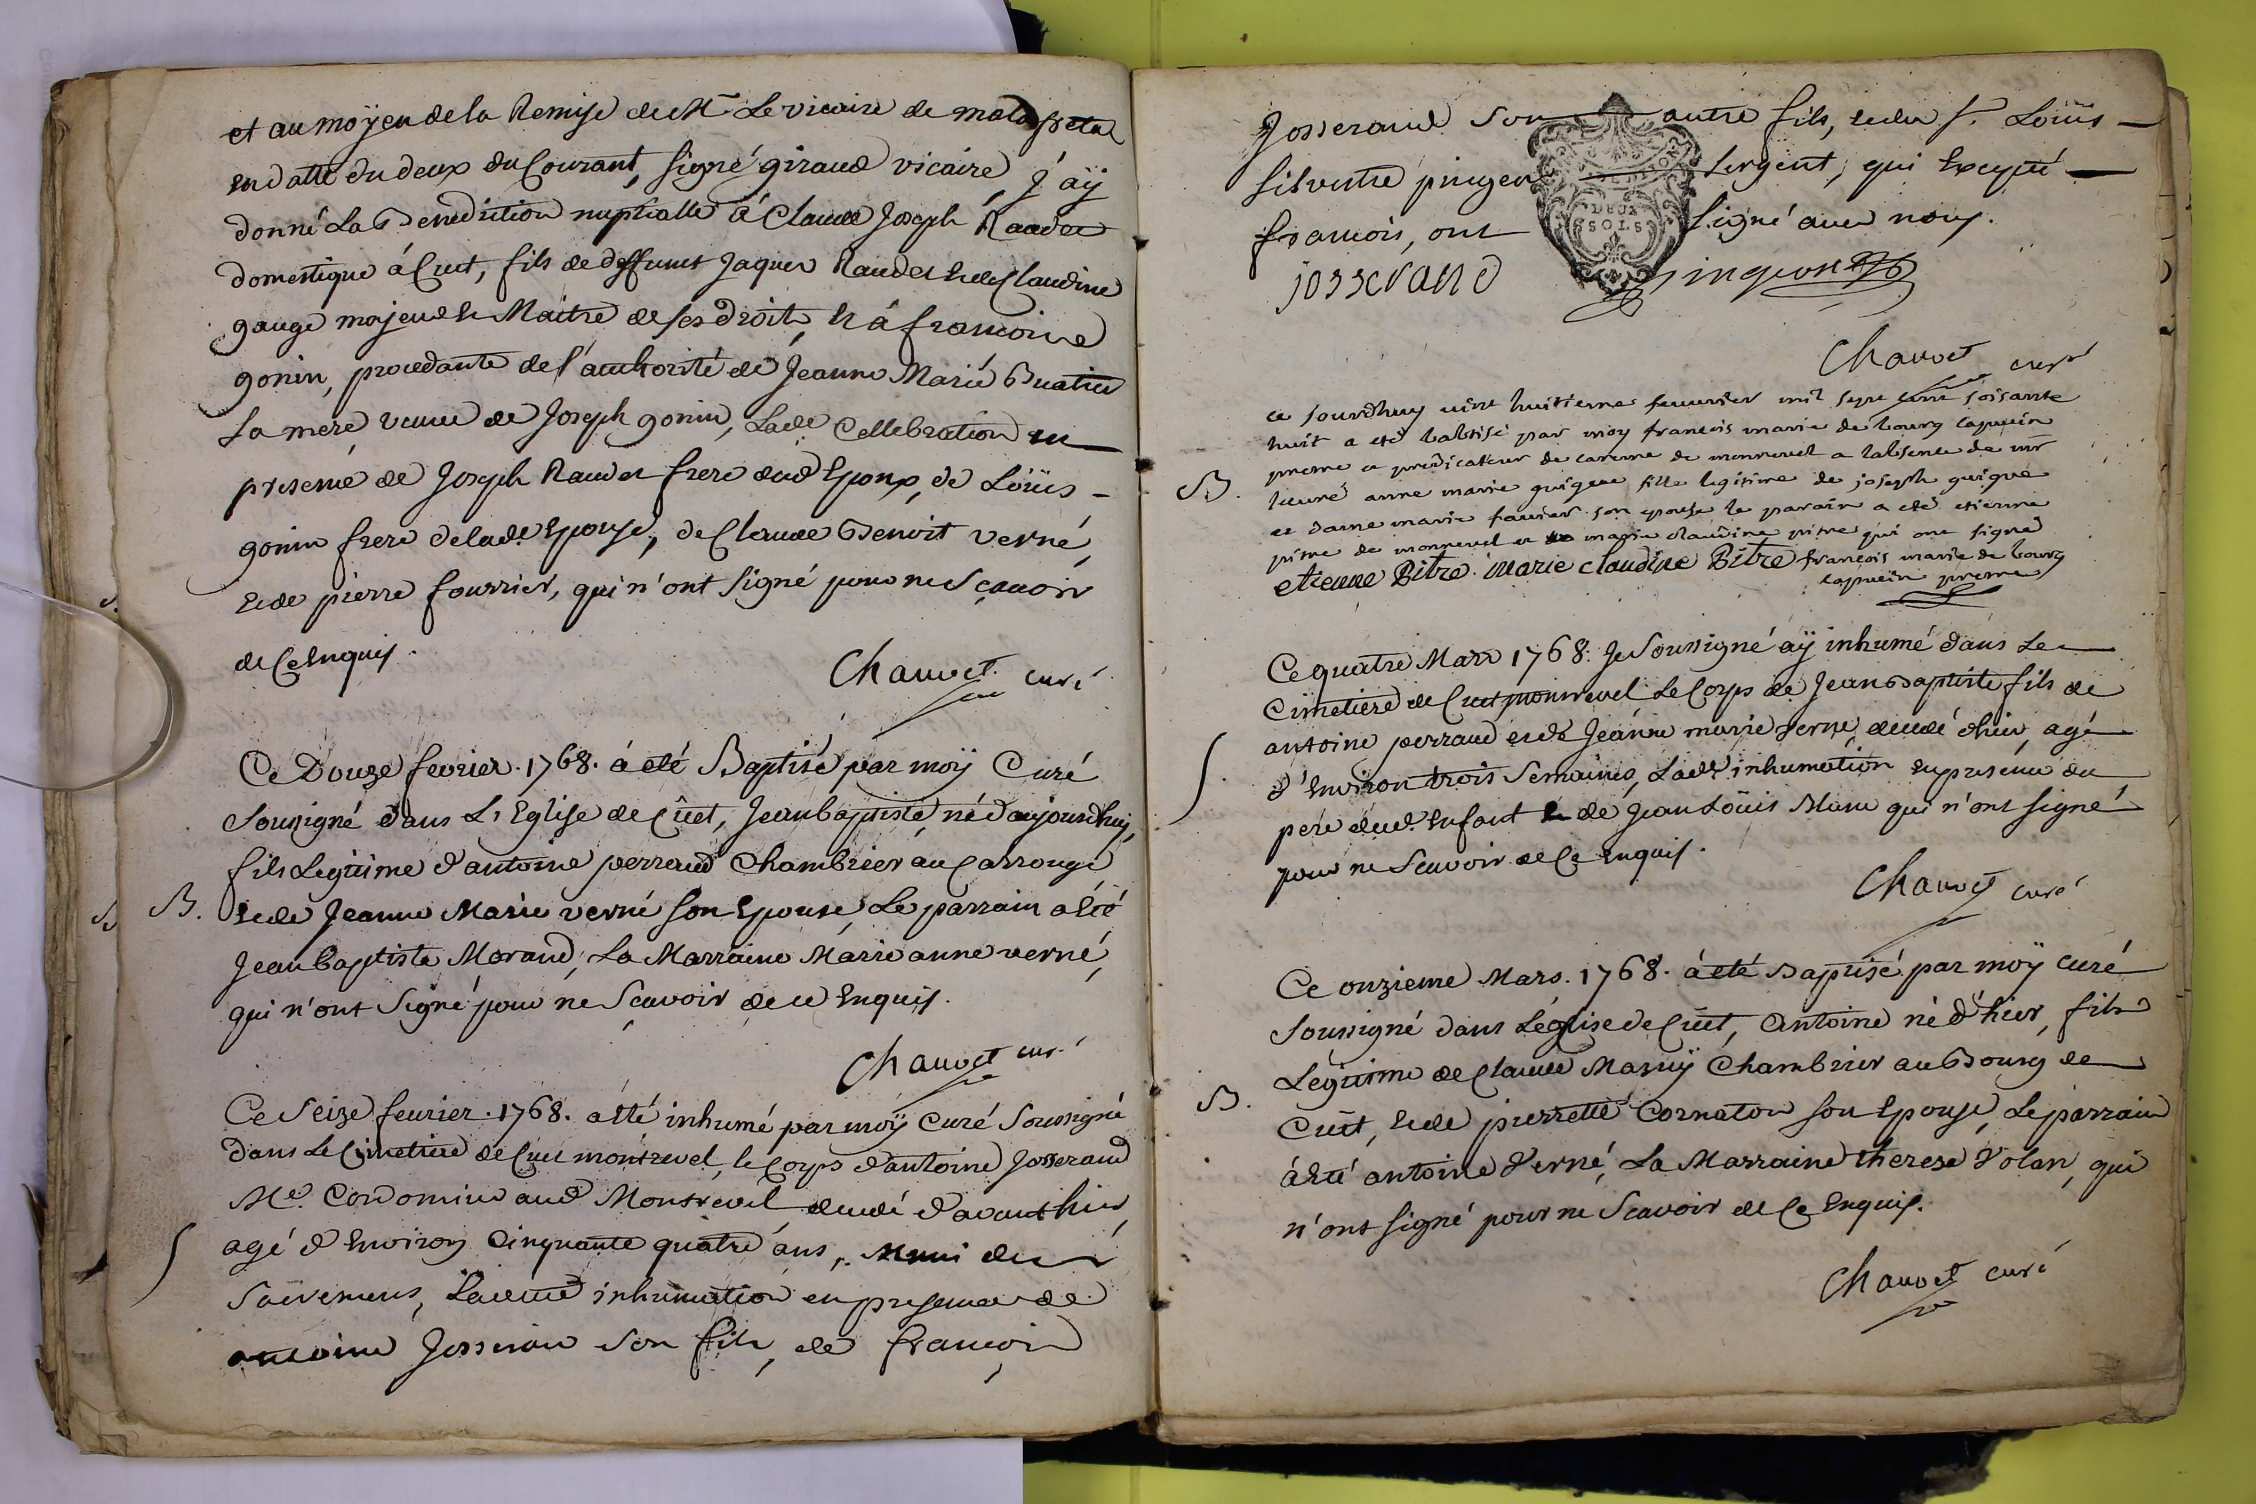 et au moÿen de la Remise de Mr Le vicaire de malafretas
en datte du deux du Courant, signé giraud vicaire, j'aÿ
donné La Benediction nuptialle á Claude Joseph Raudet
domestique á Cuet, fils de deffunct Jaques Raudet et de Claudine
gauge majeur et Maitre de ses droits, et á francoise
gonin, procedante de l'authorité de Jeanne Marie Buatier
sa mere, veuve de Joseph gonin, Lade Cellebration en
presence de Joseph Raudet frere dud Epoux, de Loüis
gonin frere de lade Epouse, de Claude Benoit verné,
et de pierre fourrier, qui n'ont signé pour ne sçauoir
de Ce Enquis.
Chauvet curé
Ce Douze fevrier. 1768. á eté Baptisé par moÿ Curé
soussigné dans L'Eglise de Cüet, Jean baptiste, né d'aujourdhuy,
fils Legitime d'antoine perraud Chambrier au Carrouge
B. et de Jeanne Marie verné son Epouse, Le parrain a Eté
Jean baptiste Morand, La Marraine Marie anne verné,
qui n'ont signé pour ne sçavoir de ce Enquis.
Chauvet curé
Ce seize feurier. 1768. a été inhumé par moÿ Curé soussigné
dans Le Cimetiere de Cuet montrevel, le Corps d'antoine Josserand
Me. Cordonnier aud Montrevel, decedé d'avant hier,
agé d'Environ Cinquante quatre ans, Muni des
sacremens, Ladite inhumation en presence de
antoine Josserand son fils, de francois
Josserand son autre fils, et du sr. Loüis
silvestre pingeon sergent, qui Excepté
francois, ont signé avec nous.
DEUX
SOLS
josserand pingeon
Chauvet curé
ce jourdhuy vint huittieme feuurier mil sept cent soisante
huit a eté babtisé par moy françois marie de bourg capucin
pretre et predicateur de careme de monrevel a labsence de mr
B. lacuré anne marie guigue fille legitime de joseph guigue
et dame marie fauier son epouse le parain a eté etienne
pitre de monrevel et marie claudine pitre qui ont signé
etienne Bitre. marie claudine Bitre françois marie de bourg
capucin pretre
Ce quatre Mars 1768. Je soussigné aÿ inhumé dans Le
Cimetiere de Cuet montrevel Le Corps de Jean Baptiste fils de
antoine perraud et de Jeanne marie verne, decedé d'hier, agé
d'Environ trois semaines, Lade inhumation en presence du
pere dud. Enfant et de Jean Loüis Blanc qui n'ont signé
pour ne scavoir de Ce Enquis.
Chauvet curé
Ce onzieme Mars. 1768. á eté Baptisé par moÿ curé
soussigné dans L'église de Cüet, Antoine né d'hier, fils
Legitime de Claude Maruÿ Chambrier au Bourg de
B. Cuet, et de pierrette Cornaton son Epouse, Le parrain
á eté antoine Verné, La Marraine therese Volan, qui
n'ont signé pour ne scavoir de Ce Enquis.
Chauvet curé